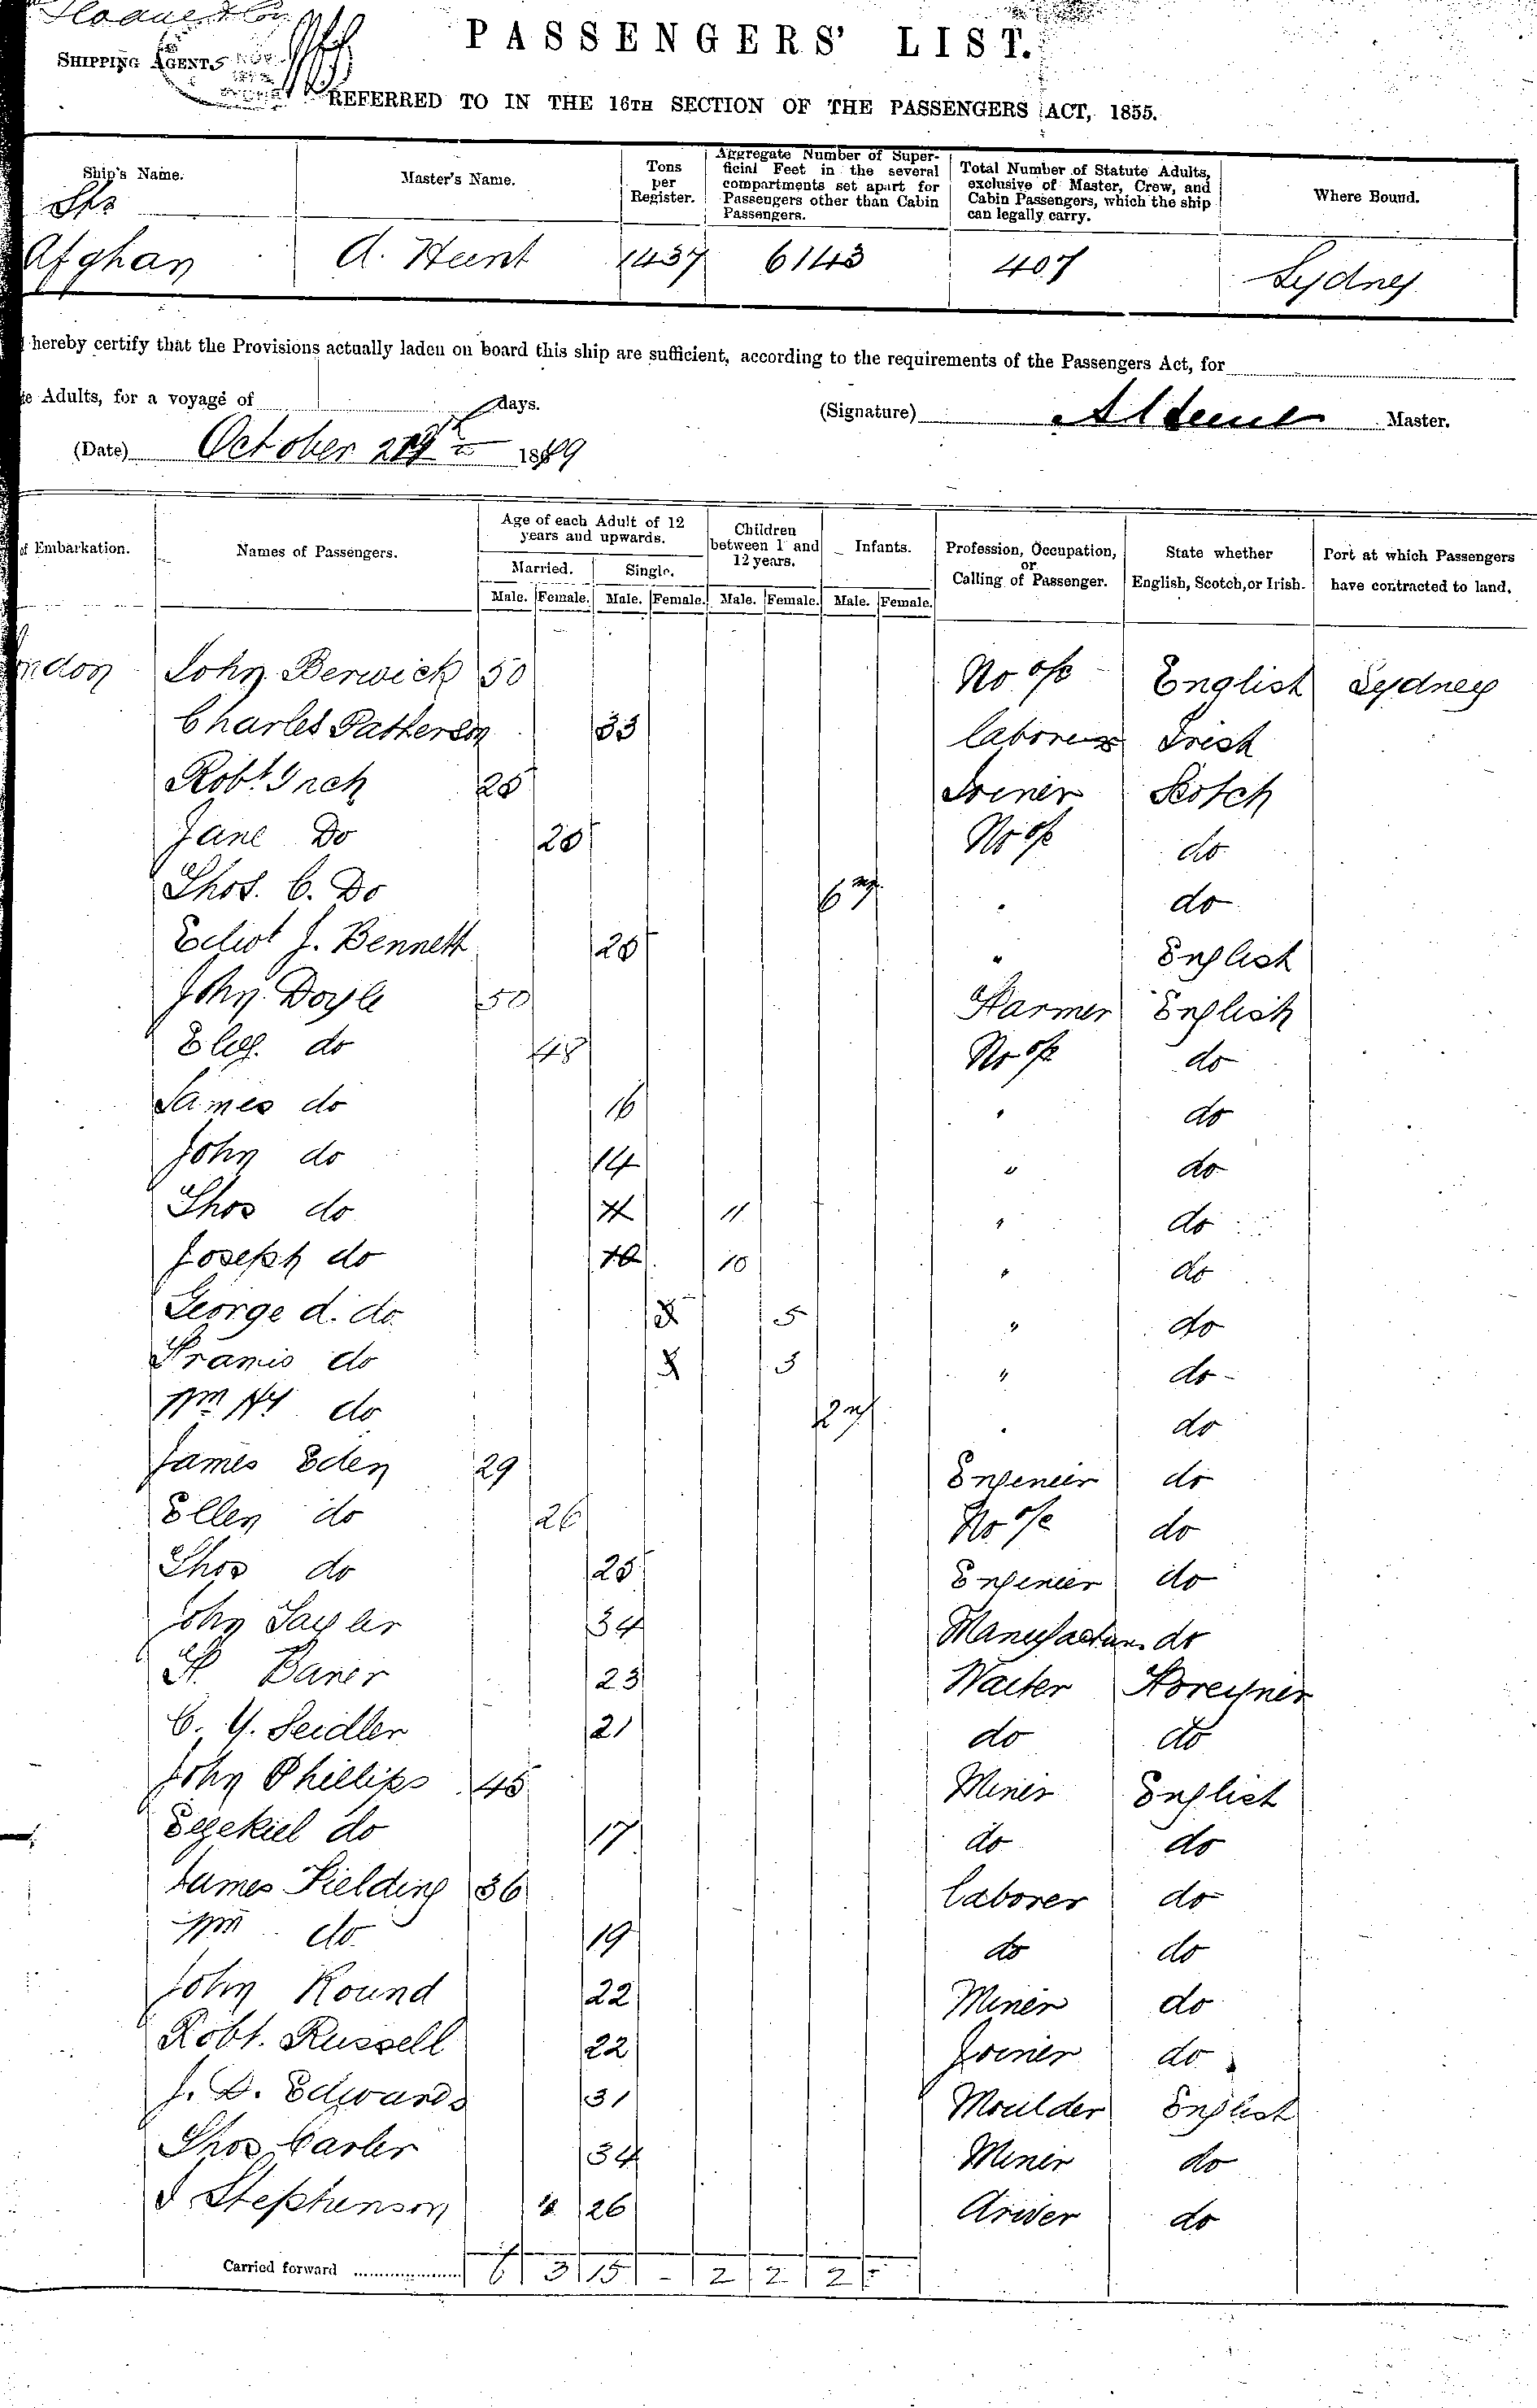 SHIPPING AGENTS
PASSENGERS' LIST.
REFERRED TO IN THE 16TH SECTION OF THE PASSENGERS ACT, 1855.
Ship's Name. Master's Name. Tons per Register. Aggregate Number of Superficial Feet in the several compartments set apart for Passengers other than Cabin Passengers. Total Number of Statute Adults, exclusive of Master, Crew, and Cabin Passengers, which the ship can legally carry. Where Bound.
Afghan A. Hunt 1437 6143 407 Sydney
hereby certify that the Provisions actually laden on board this ship are sufficient, according to the requirements of the Passengers Act, for
Adults, for a voyage of days.
(Signature) Master.
(Date) October 1889
of Embarkation. Names of Passengers. Age of each Adult of 12 years and upwards. Children between 1 and 12 years. Infants. Profession, Occupation, or Calling of Passenger. State whether English, Scotch, or Irish. Port at which Passengers have contracted to land.
Married. Single.
Male. Female. Male. Female. Male. Female. Male. Female.
ndon John Berwick 50 No occ English Sydney
Charles Patterson 33 laborer Irish
Robt. Inch 25 Joiner Scotch
Jane Do 25 No occ do
Thos. C. Do 6 do
J. Bennett 25 " English
John Doyle 50 Farmer English
Eliz. do 48 No occ do
James do 16 " do
John do 14 " do
Thos do 11 " do
Joseph do 10 10 " do
George d. do 5 " do
Francis do 3 " do
Wm Hy do " do
James Eden 29 Engineer do
Ellen do 26 No occ do
Thos do 25 Engineer do
John Sayler 34 Manufactur do
Baner 23 Waiter Foreigner
C. Y. Seidler 21 do do
John Phillips 45 Miner English
Ezekiel do 17 do do
James Fielding 36 laborer do
Wm do 19 do do
John Round 22 Miner do
Robt. Russell 22 Joiner do
J. D. Edwards 31 Moulder English
Thos Carter 34 Miner do
J Stephenson 26 do
Carried forward 6 3 15 - 2 2 2 -